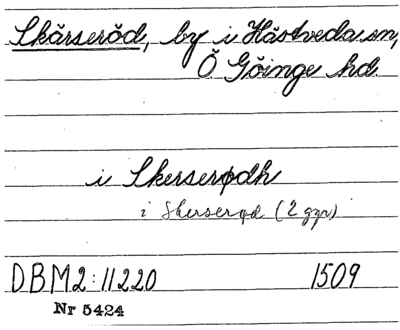 Skärseröd, by i Hästveda sn,
Ö Göinge hd.
i Skerserødh
i Skerserød (2 ggr)
DBM2:11220 1509
Nr 5424